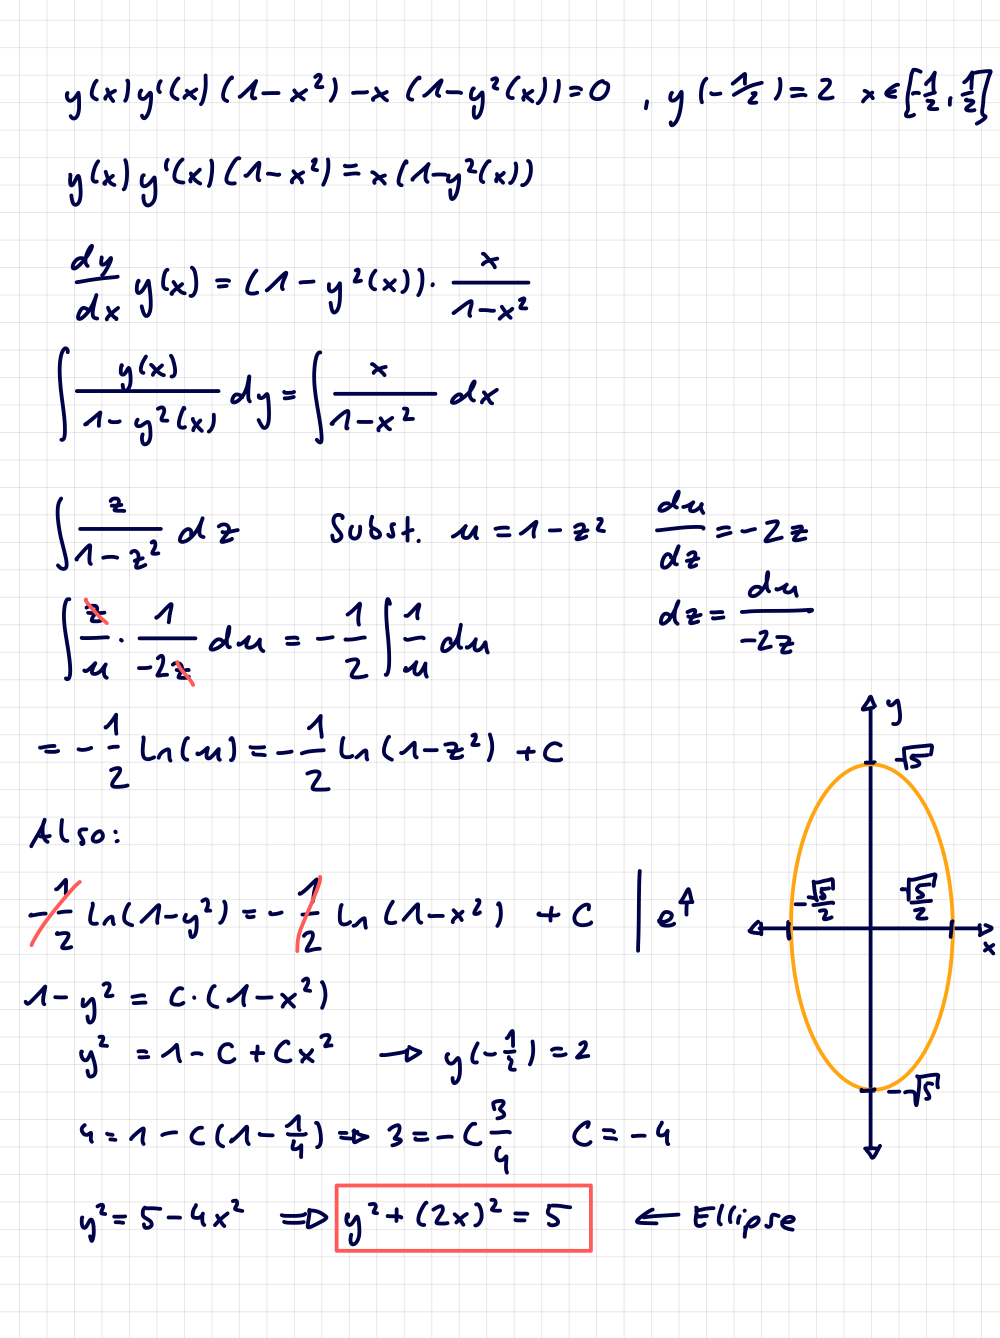 y(x)y'(x)(1-x²)-x(1-y²(x))=0 , y(-1/2)=2 x∈[-1/2,1/2]
y(x)y'(x)(1-x²)=x(1-y²(x))
dy/dx y(x) = (1-y²(x))· x/(1-x²)
∫ y(x)/(1-y²(x)) dy = ∫ x/(1-x²) dx
∫ z/(1-z²) dz Subst. u=1-z² du/dz=-2z
∫ z/u · 1/(-2z) du = -1/2 ∫ 1/u du dz=du/(-2z)
= -1/2 ln(u)=-1/2 ln(1-z²) +C
Also:
-1/2 ln(1-y²)=-1/2 ln(1-x²) +C | e↑
1-y² = C·(1-x²)
y² =1-C+Cx² → y(-1/2)=2
4=1-C(1-1/4) ⇒ 3=-C 3/4 C=-4
y²=5-4x² ⇒ y²+(2x)²=5 ← Ellipse
y
√5
-√5/2 √5/2
x
-√5